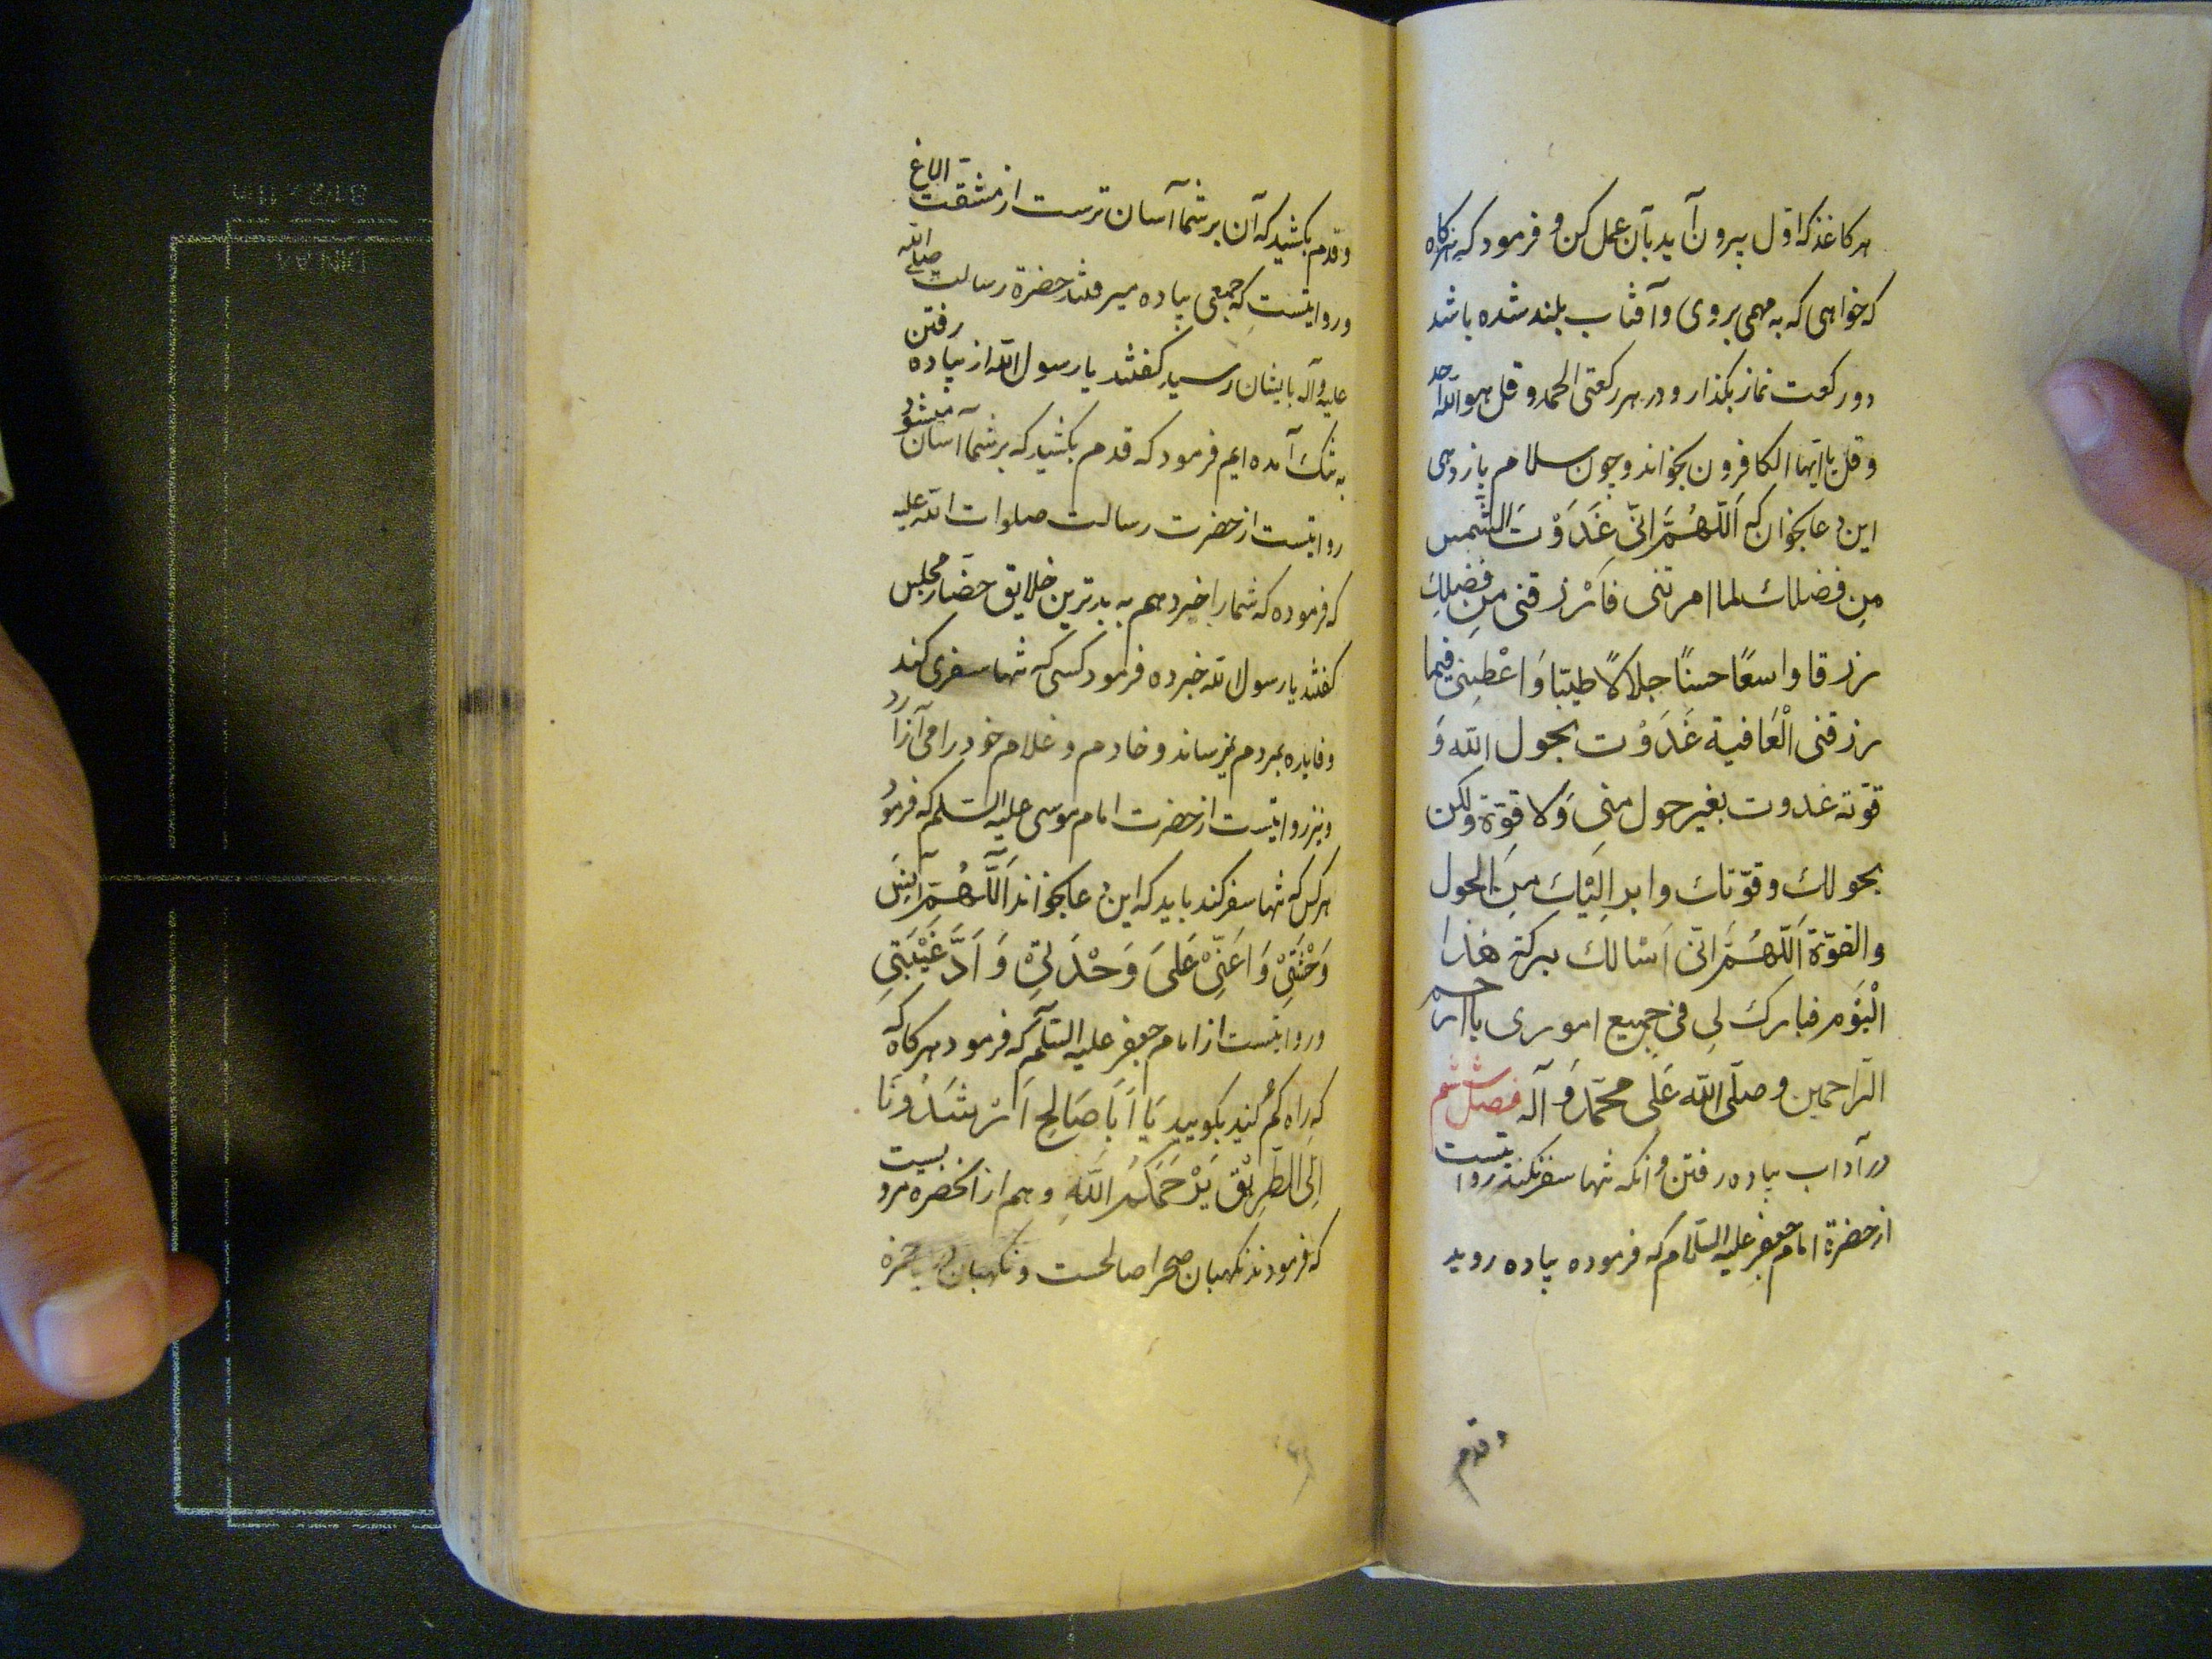 هر کاغذ که اول بیرون آید بآن عمل کن و فرمود که هرکاه
که خواهی که به مهمی بروی و آفتاب بلند شده باشد
دو رکعت نماز بکذار و در هر رکعتی الحمد و قل هو الله احد
و قل یا ایها الکافرون بخواند و چون سلام باز دهی
این دعا بخوان که اَللّهُمَّ اِنّی غَدَوْتَ الشمس
مِن فضلك لما امرتنی فَارْزقنی مِن فَضلِكَ
رزقا واسعًا حسنًا حلالًا طیّبا وَاعْطِنی فیما
رزقنی الْعَافیة غَدَوْت بحول الله وَ
قوّته غدوت بغیر حول منی وَلا قوّة ولکن
بحولك وقوّتك وابرا الَیْكَ مِنَ الحول
والقوّة اَللّهُمَّ انّی اَسْالكَ برکة هٰذا
الْیَوْم فبارك لِی فی جمیع اموری یا ارحم
الرّاحمین وصلّی الله عَلی محمّد وَ آله فصل ششم
در آداب پیاده رفتن و آنکه تنها سفر نکنند روایتست
از حضرة امام جعفر علیه السّلام که فرموده پیاده روید
و قدم
و قدم بکشید که آن بر شما آسان ترست از مشقت الاغ
و روایتست که جمعی پیاده میرفتند حضرة رسالت صلی الله
علیه و آله بایشان رسید کفتند یا رسول الله از پیاده رفتن
به تنك آمده ایم فرمود که قدم بکشید که بر شما آسان میشود
روایتست از حضرت رسالت صلوات الله علیه
که فرموده که شما را خبر دهم به بدترین خلایق حضار مجلس
کفتند یا رسول الله خبر ده فرمود کسی که تنها سفری کند
و فایده بمردم نرساند و خادم و غلام خود را می آزارد
و نیز روایتست از حضرت امام موسی علیه السّلم که فرمود
هر کس که تنها سفر کند باید که این دعا بخواند اَللَّهُمَّ آنِس
وَحْشَتِیْ وَاَعِنّیْ عَلیَ وَحْدَتِیْ وَ اَدِّ غَیْبَتِی
و روایتست از امام جعفر علیه السّلم که فرمود هرکاه که
که راه کم کنید بکویید یَا اَبَا صَالِحِ اَرْشَدُونَا
اِلَی الطَّرِیْقِ یَرْحَمَکُمُ اللَّهِ و هم از آنحضره مرویست
که فرمودند نکهبان صحرا صالحست و نکهبان حمزه